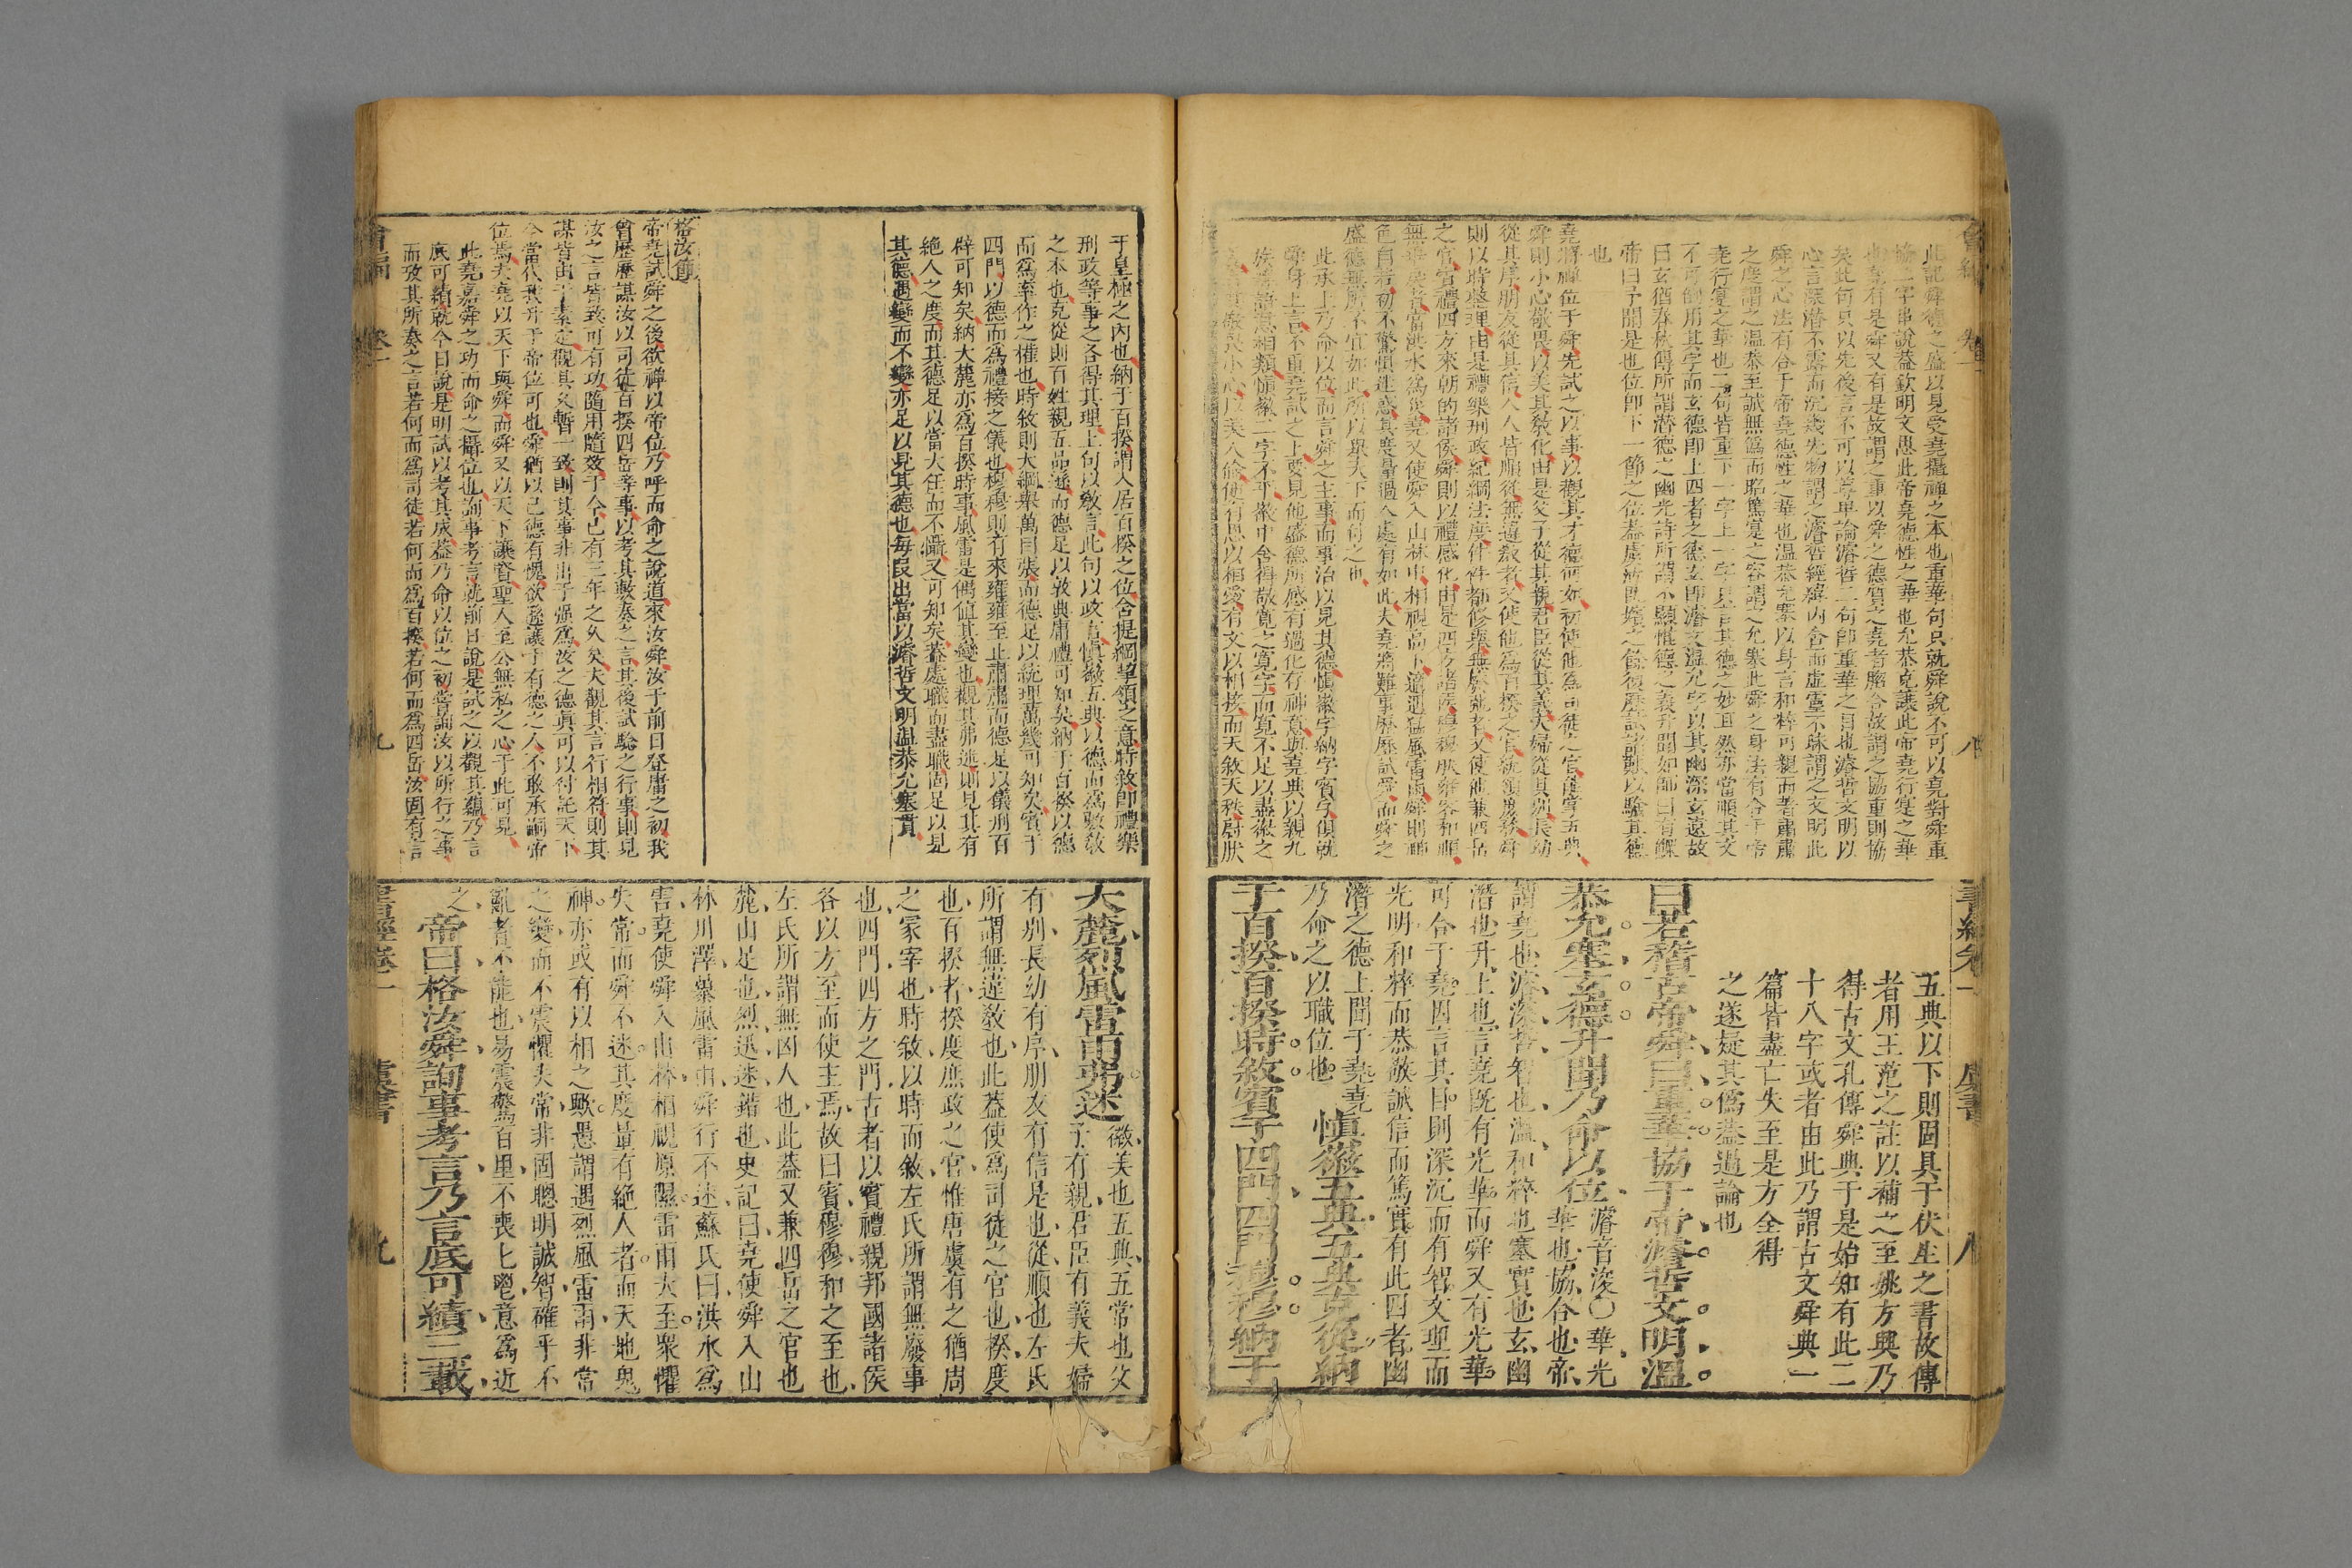 此記舜德之盛以見受堯攝禪之本也重華句只就舜說不可以堯對舜重
協二字串說蓋欽明文思此帝堯德性之華也允恭克讓此帝堯行寔之華
也堯有是舜又有是故謂之重以舜之德寔之堯者脗合故謂之協重則協
矣此句只以先後言不可以尊卑論濬哲二句即重華之目也濬哲文明以
心言深潛不露而沉幾先物謂之濬哲經緯內含而虛靈不昧謂之文明此
舜之心法有合于帝堯德性之華也溫恭允塞以身言和粹可親而著肅肅
之度謂之溫恭至誠無僞而昭篤寔之容謂之允塞此舜之身法有合于帝
堯行寔之華也二句皆重下一字上一字只言其德之妙且然亦當順其文
不可倒用其字而玄德即上四者之德玄即濬文溫允字以其幽深玄遠故
曰玄猶春秋傳所謂潛德之幽光詩所謂不顯惟德之義升聞如師曰有鰥
帝曰予聞是也位即下一節之位蓋既嬪之餘復歷試諸艱以驗其德
也
堯將禪位于舜先試之以事以觀其才德何如初使他爲司徒之官五典
舜則小心敬畏以美其敎化由是父子從其親君臣從其義夫婦從其別長幼
從其序朋友從其信人人皆順從無違敎者又使他爲百揆之官統領庶務舜
則以時整理由是禮樂刑政紀綱法度件件都修舉無廢弛者又使他兼四岳
之官賓禮四方來朝的諸侯舜則以禮感化由是四方諸侯穆穆然雍容和順
無乖戾者當洪水爲災堯又使舜入山林中相視高下適遇猛風雷雨舜則神
色自若初不驚懼迷惑其度量過人處有如此夫堯將難事歷歷試舜而舜之
盛德無所不宜如此所以舉天下而付之也
此承上乃命以位而言舜之主事而事治以見其德慎徽字納字賓字俱就
舜身上言不重堯試之上要見他盛德所感有過化存神意與堯典以親九
族等語意相類慎徽二字不平徽中含得敬寛之寛字而寛不足以盡徽之
敬畏小心以美人倫使有恩以相愛有文以相接而天敘天秩蔚然
五典以下則固具于伏生之書故傳
者用王范之註以補之至姚方興乃
得古文孔傳舜典于是始知有此二
十八字或者由此乃謂古文舜典一
篇皆盡亡失至是方全得
之遂疑其僞蓋過論也
曰若稽古帝舜曰重華協于帝濬哲文明溫
恭允塞玄德升聞乃命以位濬音浚〇華光
華也協合也帝
謂堯也濬深哲智也溫和粹也塞實也玄幽
潛也升上也言堯既有光華而舜又有光華
可合于堯因言其目則深沉而有智文理而
光明和粹而恭敬誠信而篤實有此四者幽
潛之德上聞于堯堯
乃命之以職位也慎徽五典五典克從納
于百揆百揆時敘賓于四門四門穆穆納于
于皇極之內也納于百揆謂入居百揆之位含提綱挈領之意時敘即禮樂
刑政等事之各得其理上句以敎言此句以政言慎徽五典以德而爲敷敎
之本也克從則百姓親五品遜而德足以敦典庸禮可知矣納于百揆以德
而爲率作之權也時敘則大綱舉萬目張而德足以統理萬幾可知矣賓于
四門以德而爲禮接之儀也穆穆則有來雍雍至止肅肅而德足以儀刑百
辟可知矣納大麓亦爲百揆時事風雷是偶值其變也觀其弗迷則見其有
絕人之度而其德足以當大任而不懾又可知矣蓋處職而盡職固足以見
其德遇變而不變亦足以見其德也每叚出當以濬哲文明溫恭允塞貫
格汝節
帝堯試舜之後欲禪以帝位乃呼而命之說道來汝舜汝于前日登庸之初我
曾歷歷謀汝以司徒百揆四岳等事以考其敷奏之言其後試驗之行事則見
汝之言皆致可有功隨用隨效于今已有三年之久矣夫觀其言行相符則其
謀皆由于素定觀其久暫一致則其事非出于强爲汝之德真可以付託天下
今當代我升于帝位可也舜猶以己德有愧欲遜讓于有德之人不敢承嗣帝
位焉夫堯以天下與舜而舜又以天下讓賢聖人至公無私之心于此可見
此堯嘉舜之功而命之攝位也詢事考言就前日說是試之以觀其蘊乃言
底可績就今日說是明試以考其成蓋乃命以位之初嘗詢汝以所行之事
而攷其所奏之言若何而爲司徒若何而爲百揆若何而爲四岳汝固有言
會編 卷一 九
大麓烈風雷雨弗迷徽美也五典五常也父
子有親君臣有義夫婦
有別長幼有序朋友有信是也從順也左氏
所謂無違敎也此蓋使爲司徒之官也揆度
也百揆者揆度庶政之官惟唐虞有之猶周
之冢宰也時敘以時而敘左氏所謂無廢事
也四門四方之門古者以賓禮親邦國諸侯
各以方至而使主焉故曰賓穆穆和之至也
左氏所謂無凶人也此蓋又兼四岳之官也
麓山足也烈迅迷錯也史記曰堯使舜入山
林川澤暴風雷雨舜行不迷蘇氏曰洪水爲
害堯使舜入山林相視原隰雷雨大至眾懼
失常而舜不迷其度量有絕人者而天地鬼
神亦或有以相之歟愚謂遇烈風雷雨非常
之變而不震懼失常非固聰明誠智確乎不
亂者不能也易震驚百里不喪匕鬯意爲近
之帝曰格汝舜詢事考言乃言底可績三載
書經卷一 虞書 九